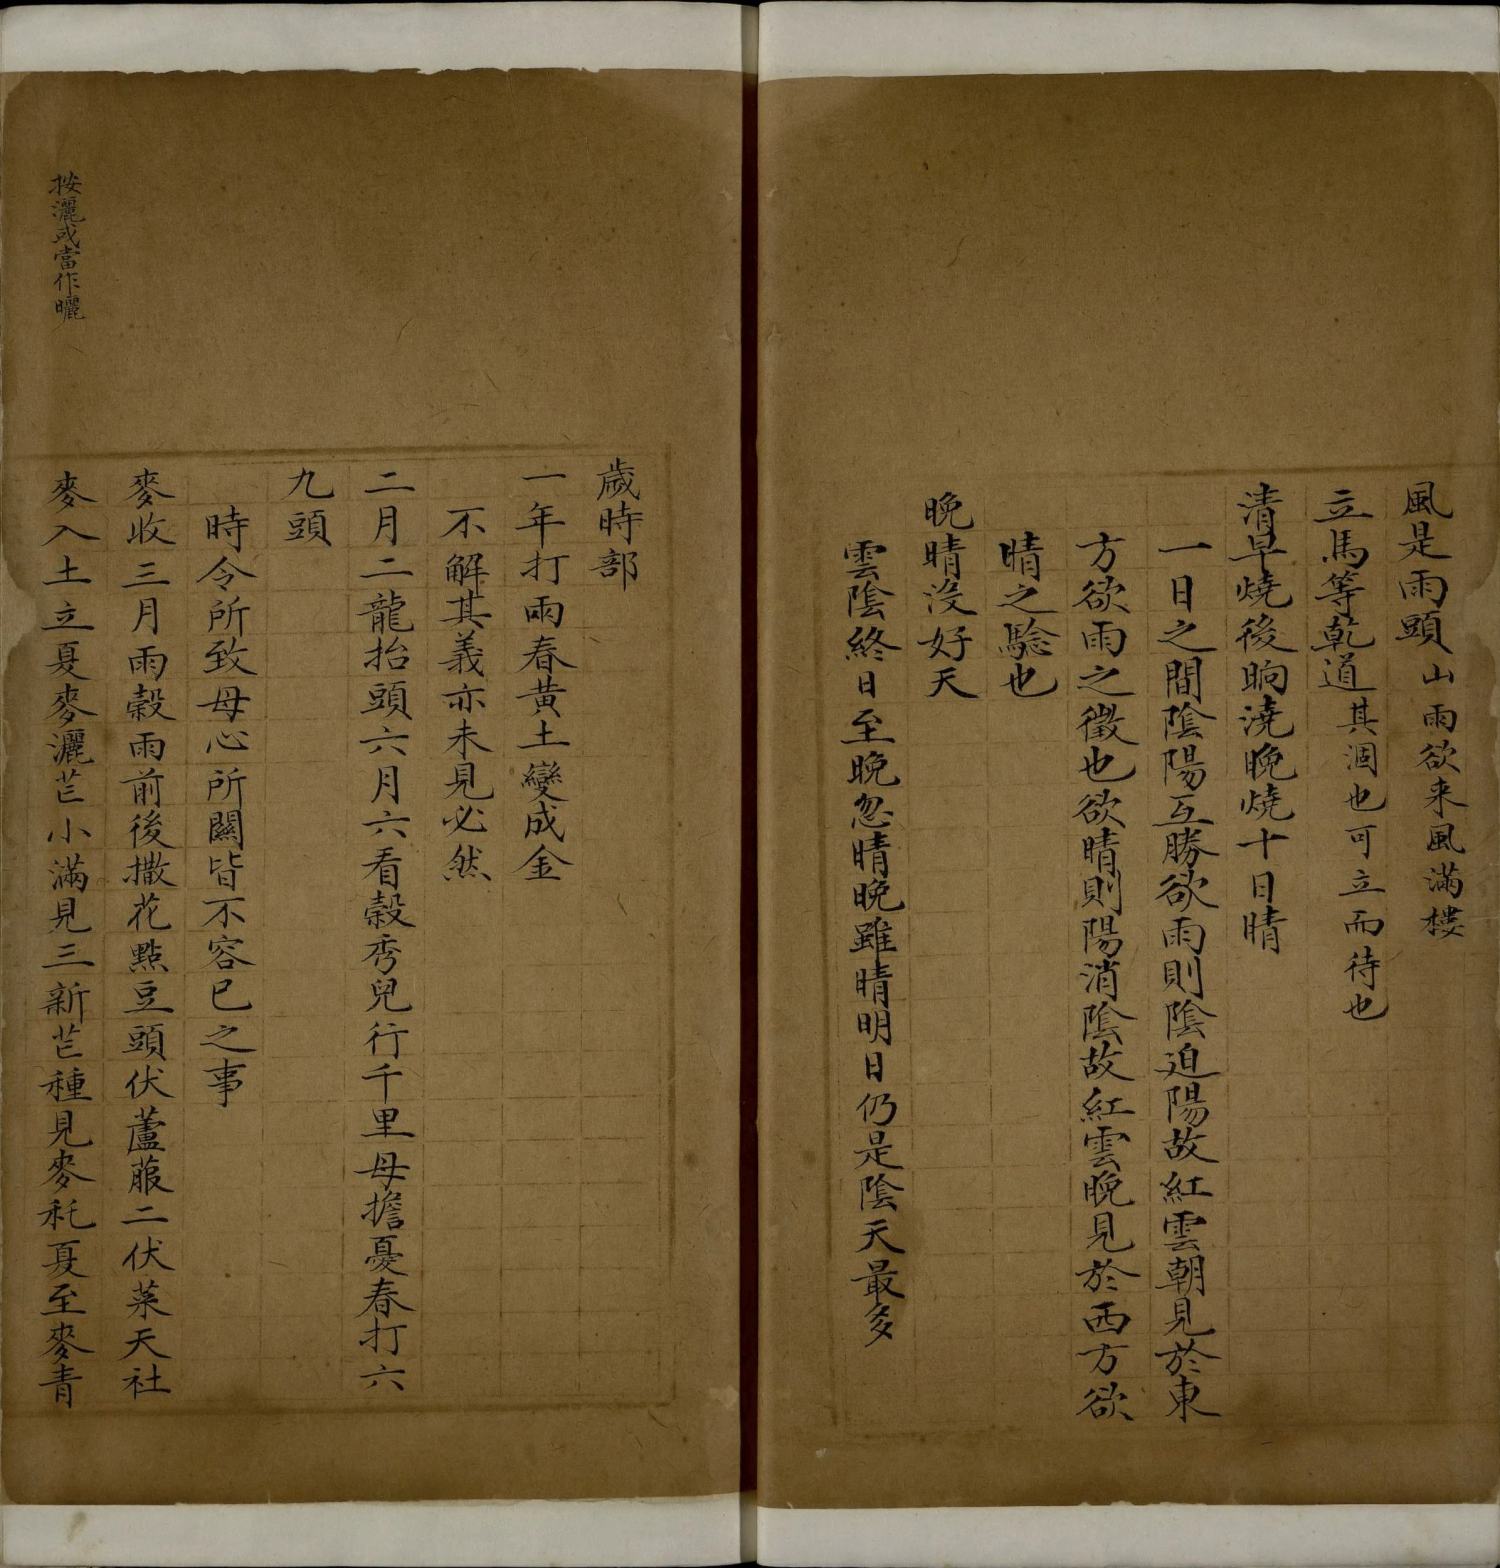 風是雨頭山雨欲来風滿樓
立馬等乾道其涸也可立而待也
清早燒後晌澆晚燒十日晴
一日之間陰陽互勝欲雨則陰迫陽故紅雲朝見於東
方欲雨之徵也欲晴則陽消陰故紅雲晚見於西方欲
晴之驗也
晚晴沒好天
雲陰終日至晚忽晴晚雖晴明日仍是陰天最多
歲時部
一年打兩春黃土變成金
不解其義亦未見必然
二月二龍抬頭六月六看穀秀兒行千里母擔憂春打六
九頭
時令所致母心所關皆不容已之事
麥收三月雨穀雨前後撒花點豆頭伏蘆菔二伏菜天社
麥入土立夏麥灑芒小滿見三新芒種見麥秏夏至麥青
按灑或當作曬